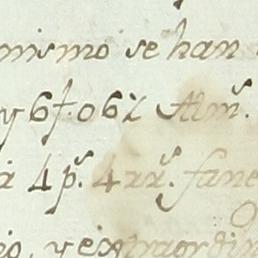 mismo se han
y 6f. 062 Alms.
4 ps. 4 rrs. fane
io, y extraordin